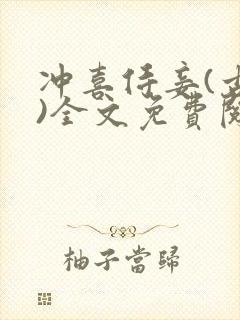 冲喜侍妾(
)全文免費閱
柚子當歸